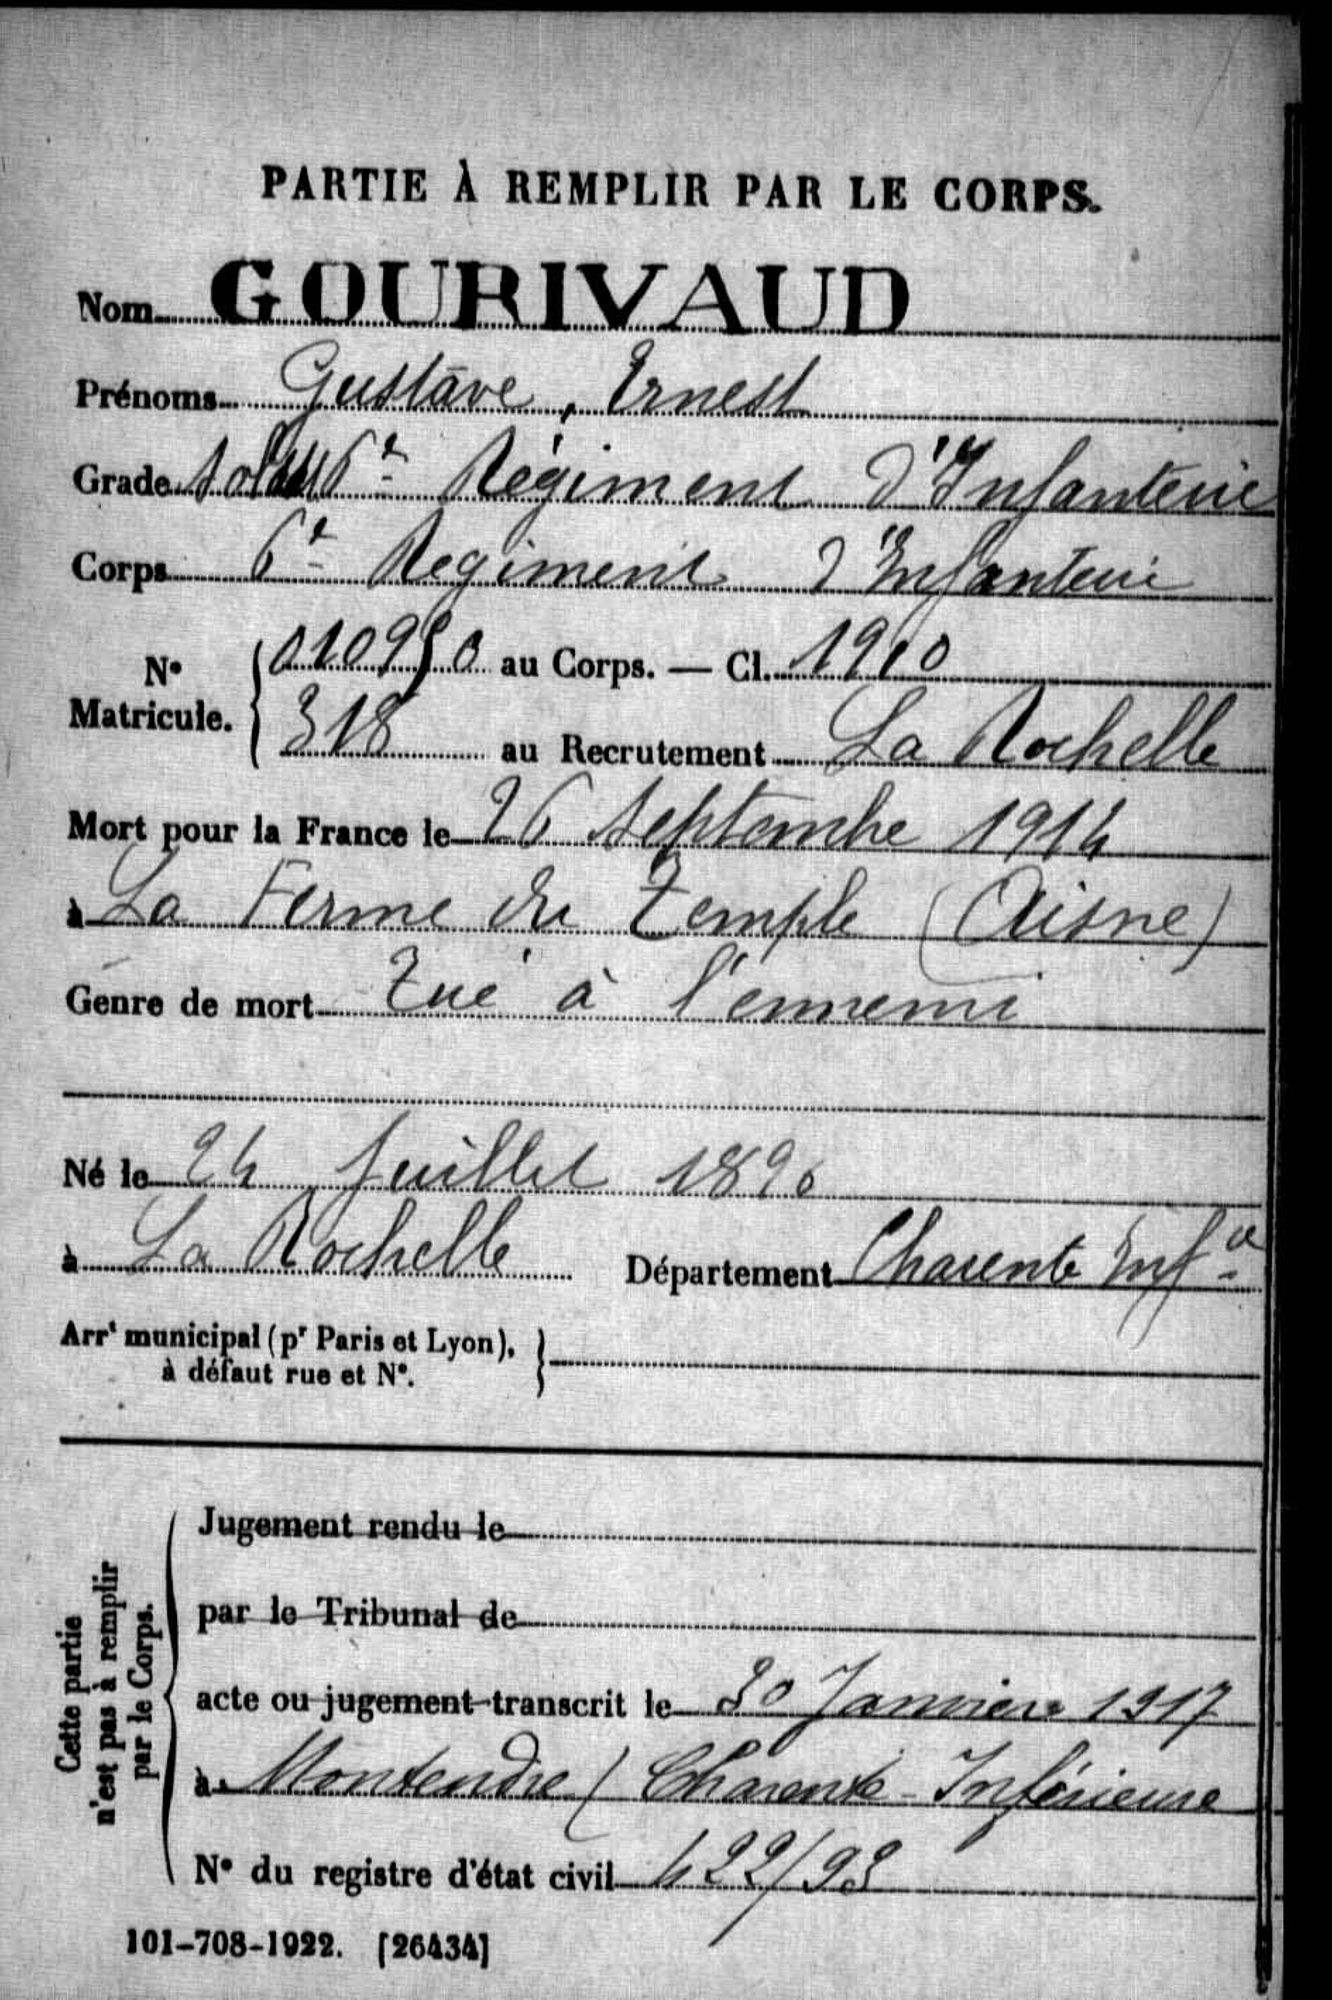 PARTIE À REMPLIR PAR LE CORPS.
Nom GOURIVAUD
Prénoms Gustave, Ernest
Grade 6e Régiment d'Infanterie
Corps 6e Régiment d'Infanterie
N° Matricule. { 010950 au Corps. — Cl. 1910
318 au Recrutement La Rochelle
Mort pour la France le 26 Septembre 1914
à La Ferme du Temple (Aisne)
Genre de mort Tué à l'ennemi
Né le 24 Juillet 1890
à La Rochelle Département Charente Infre
Arrt municipal (pr Paris et Lyon), }
à défaut rue et N°.
Cette partie
n'est pas à remplir
par le Corps.
Jugement rendu le
par le Tribunal de
acte ou jugement transcrit le 30 Janvier 1917
à Montendre (Charente-Inférieure
N° du registre d'état civil 422/93
101-708-1922. [26434]